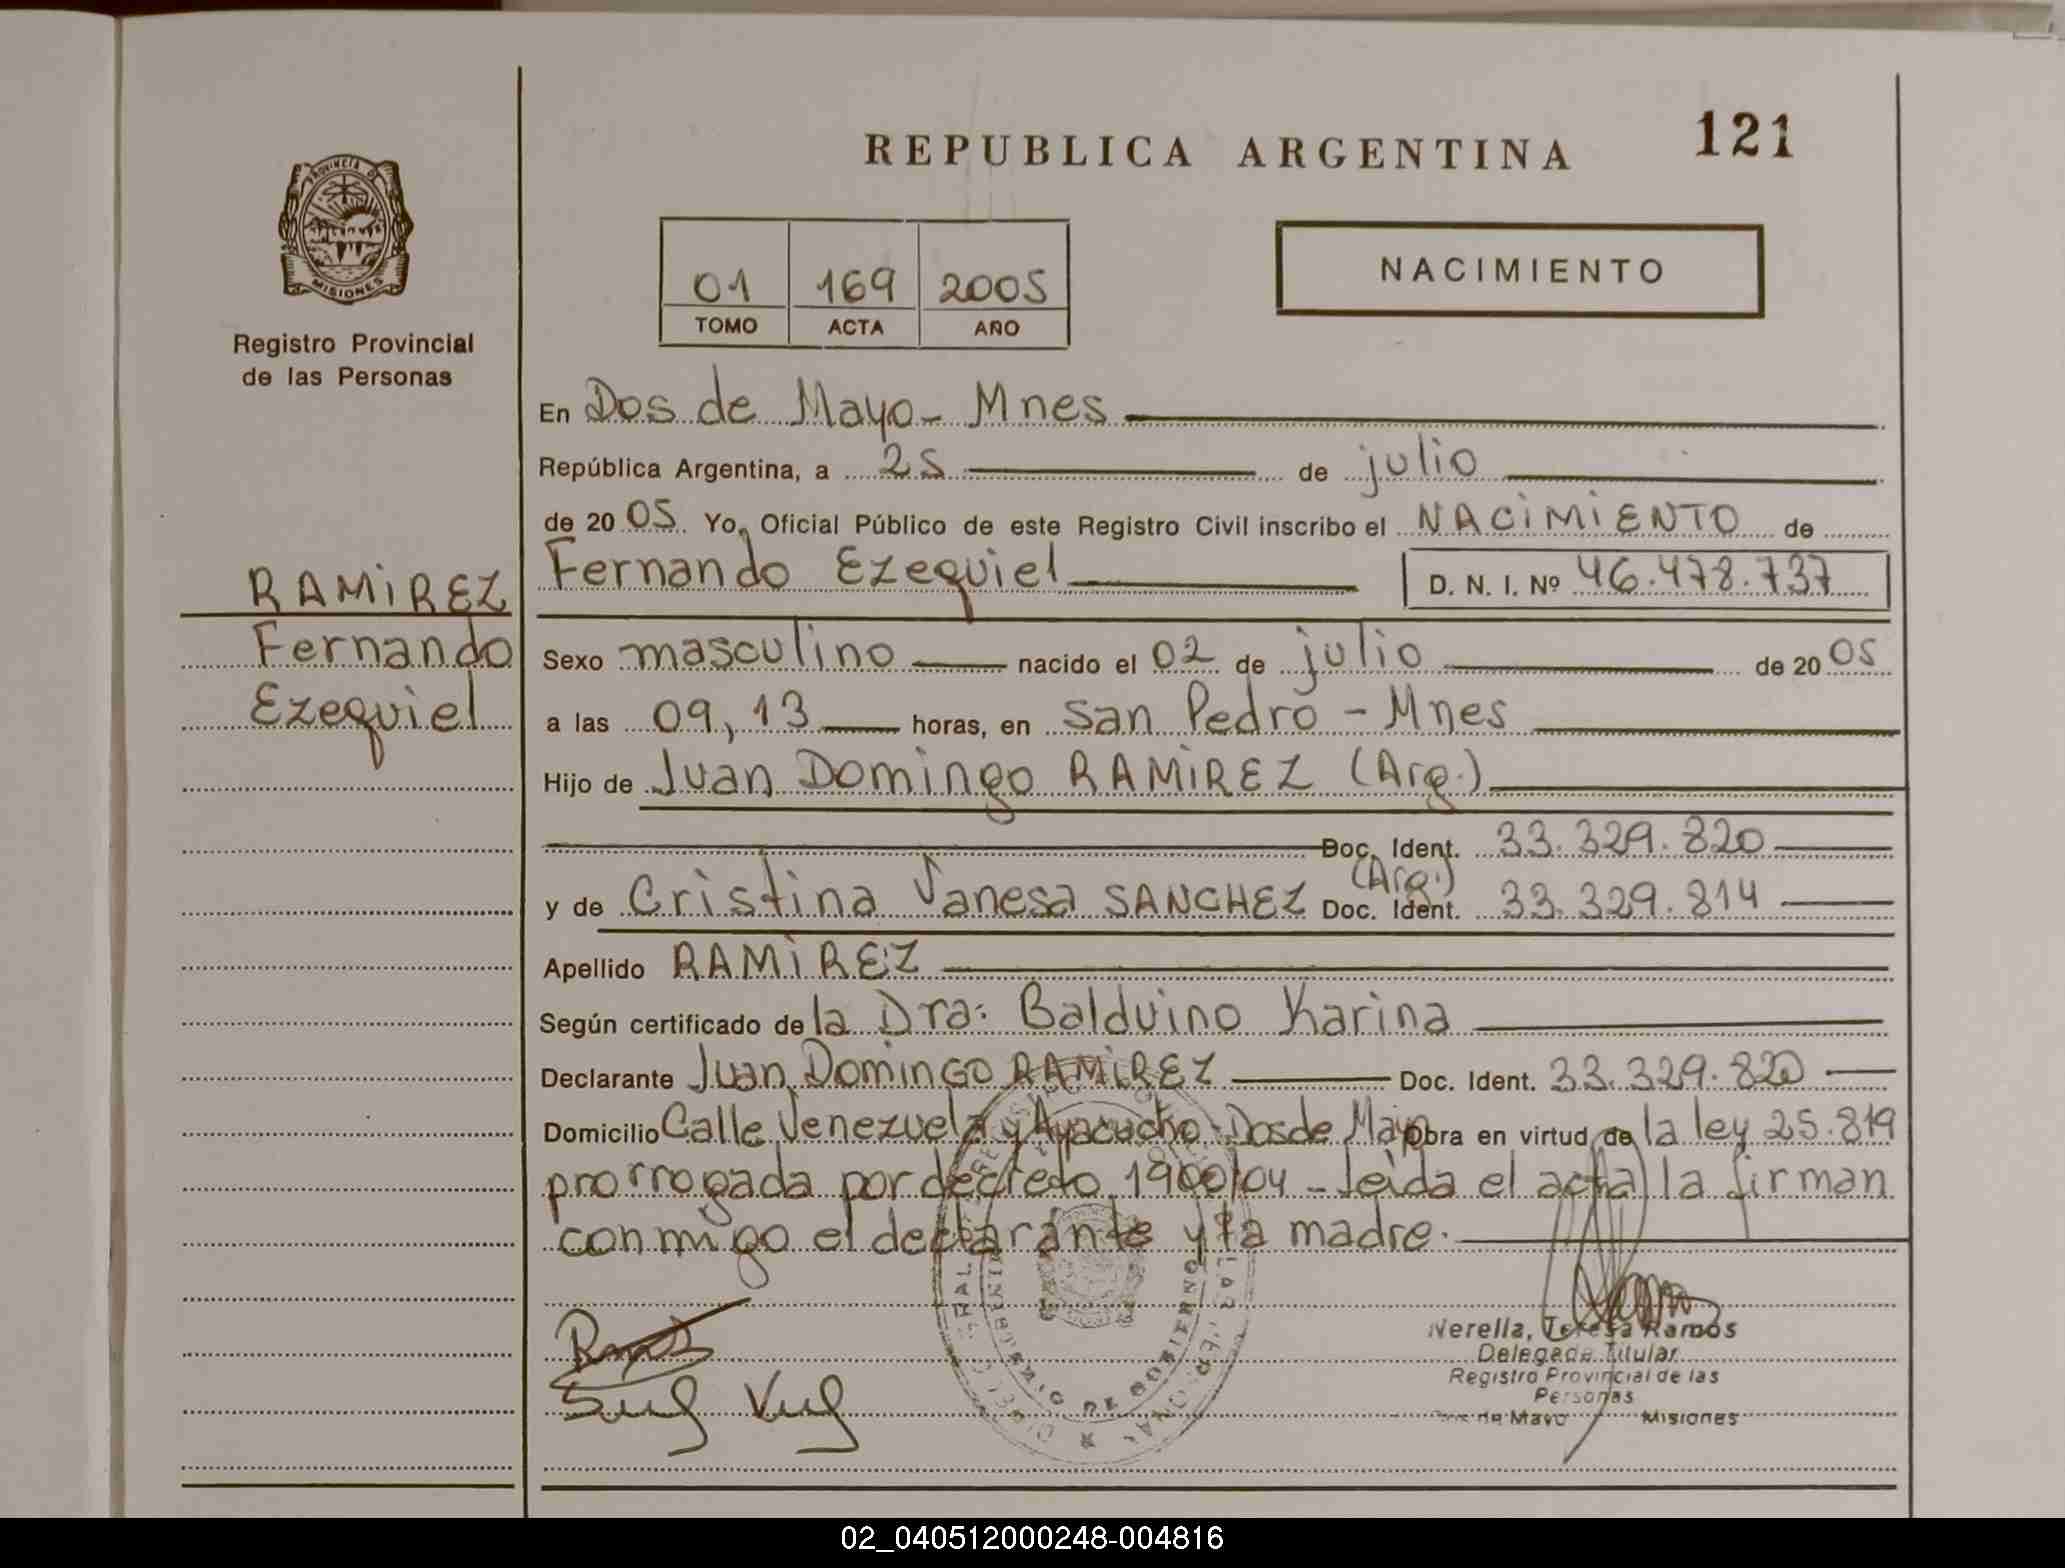 REPUBLICA ARGENTINA
121
PROVINCIA DE
MISIONES
Registro Provincial
de las Personas
01 169 2005
TOMO ACTA AÑO
NACIMIENTO
En Dos de Mayo - Mnes
República Argentina, a 25 de julio
de 2005 Yo, Oficial Público de este Registro Civil inscribo el NACIMIENTO de
Fernando Ezequiel D. N. I. Nº 46.478.737
RAMIREZ
Fernando
Ezequiel
Sexo masculino nacido el 02 de julio de 2005
a las 09,13 horas, en San Pedro - Mnes
Hijo de Juan Domingo RAMIREZ (Arg.)
Doc. Ident. 33.329.820
(Arg.)
y de Cristina Vanesa SANCHEZ Doc. Ident. 33.329.814
Apellido RAMIREZ
Según certificado de la Dra: Balduino Karina
Declarante Juan Domingo RAMIREZ Doc. Ident. 33.329.820
Domicilio Calle Venezuela y Ayacucho - Dos de Mayo Obra en virtud de la ley 25.819
prorrogada por decreto 1900/04 - leida el acta la firman
conmigo el declarante y la madre.
MINISTERIO DE GOBIERNO
Nerella, Teresa Ramos
Delegada Titular
Registro Provincial de las
Personas
Dos de Mayo Misiones
02_040512000248-004816